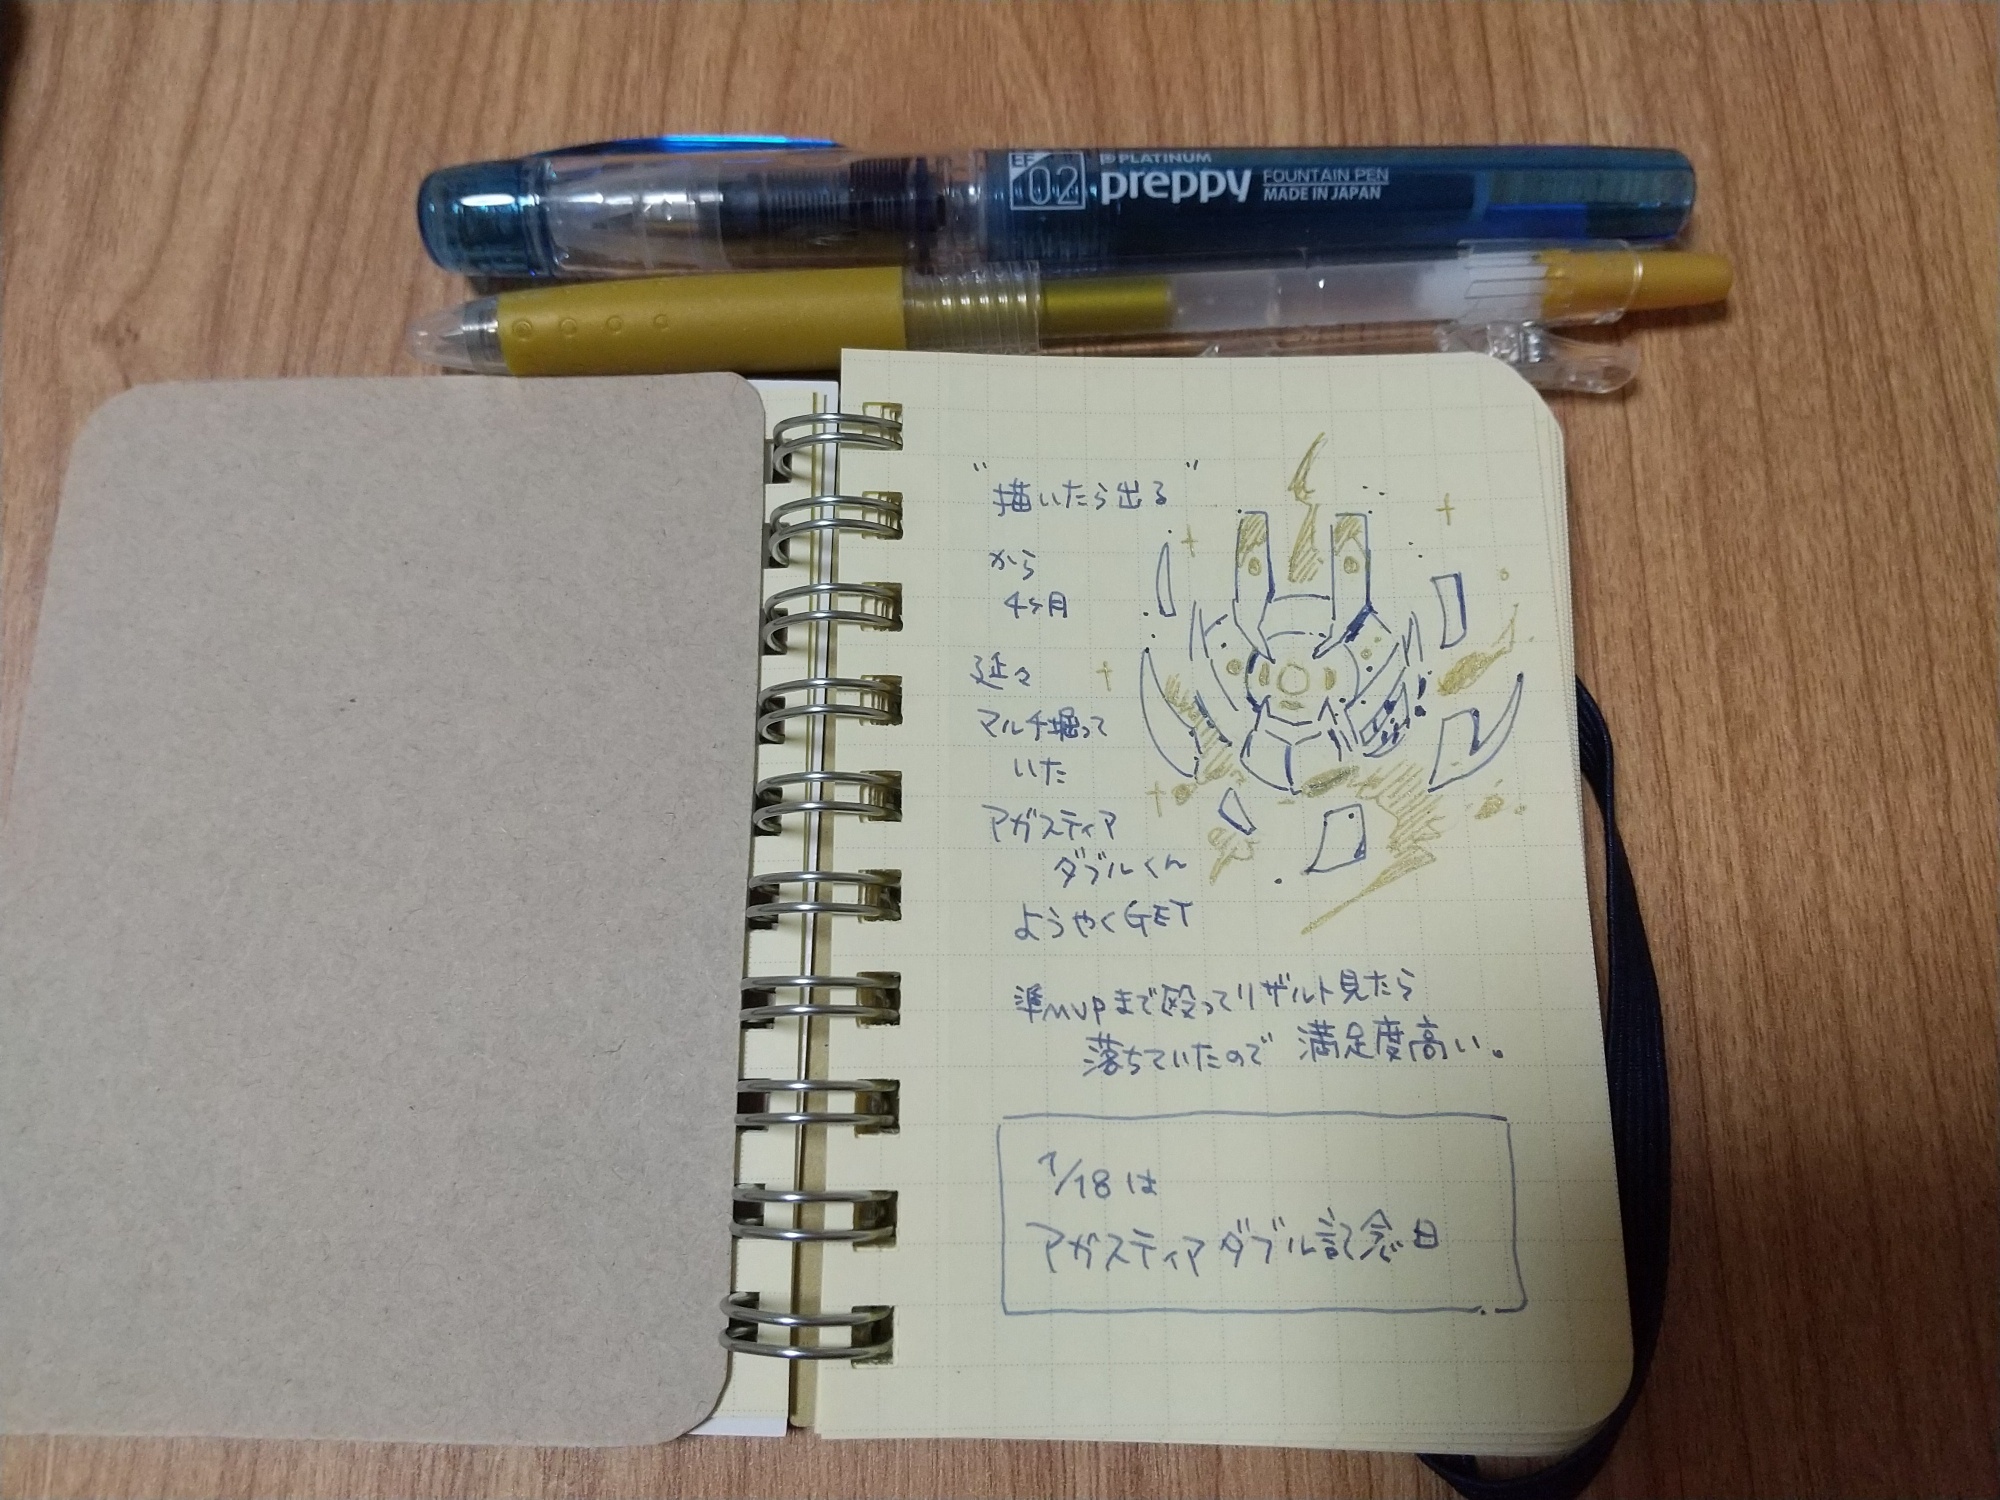 EF
02
PLATINUM
preppy
FOUNTAIN PEN
MADE IN JAPAN
"描いたら出る"
から
4ヶ月
延々
マルチ掘って
いた
アガスティア
ダブルくん
ようやくGET
準MVPまで殴ってリザルト見たら
落ちていたので 満足度高い。
1/18は
アガスティアダブル記念日